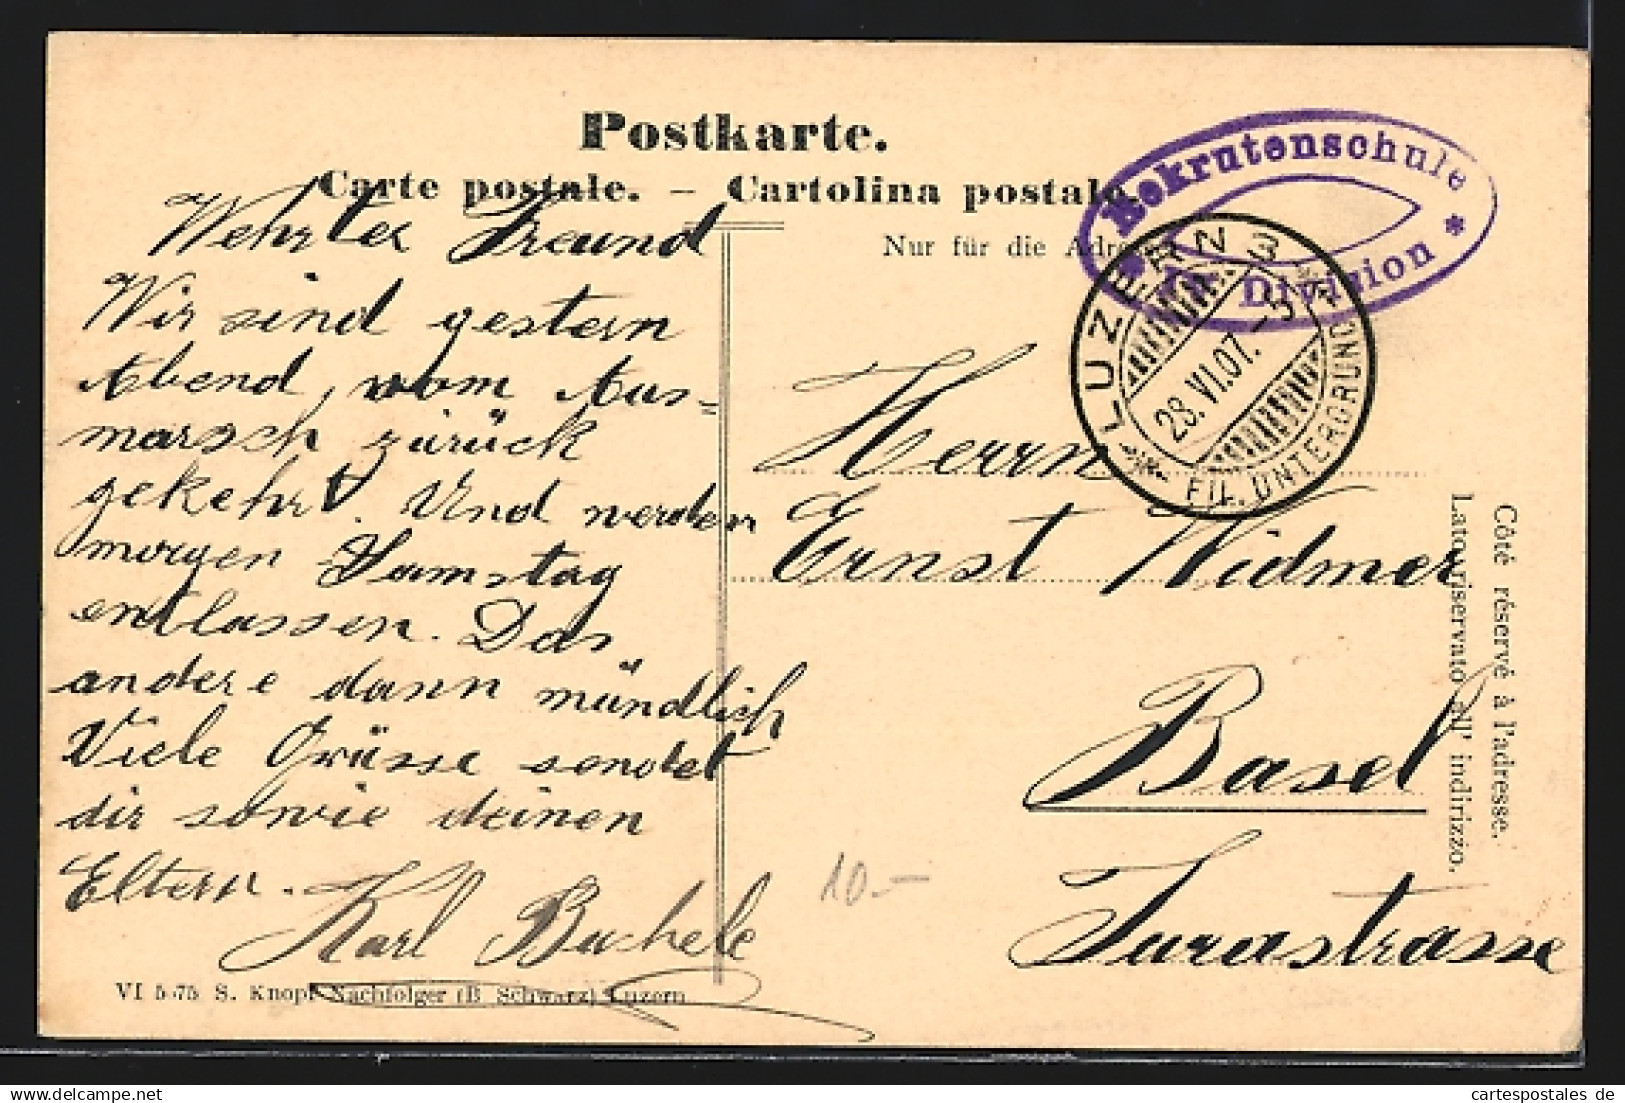 Postkarte.
Carte postale. – Cartolina postale.
Nur für die Adresse
Rekrutenschule
Division *
LUZERN 3
28.VI.07.–9
FIL. UNTERGRUND
Wehrter Freund
Wir sind gestern
Abend vom Aus-
marsch zürück
gekehrt. Und werden
morgen Samstag
entlassen. Das
andere dann mündlich
Viele Grüsse sendet
dir sowie deinen
Eltern.
Karl Buchele
Herrn
Ernst Widmer
Basel
Jurastrasse
10.–
Côté réservé à l'adresse.
Lato riservato all' indirizzo.
VI 5.75 S. Knopf Nachfolger (B. Schwarz) Luzern
cartespostales de